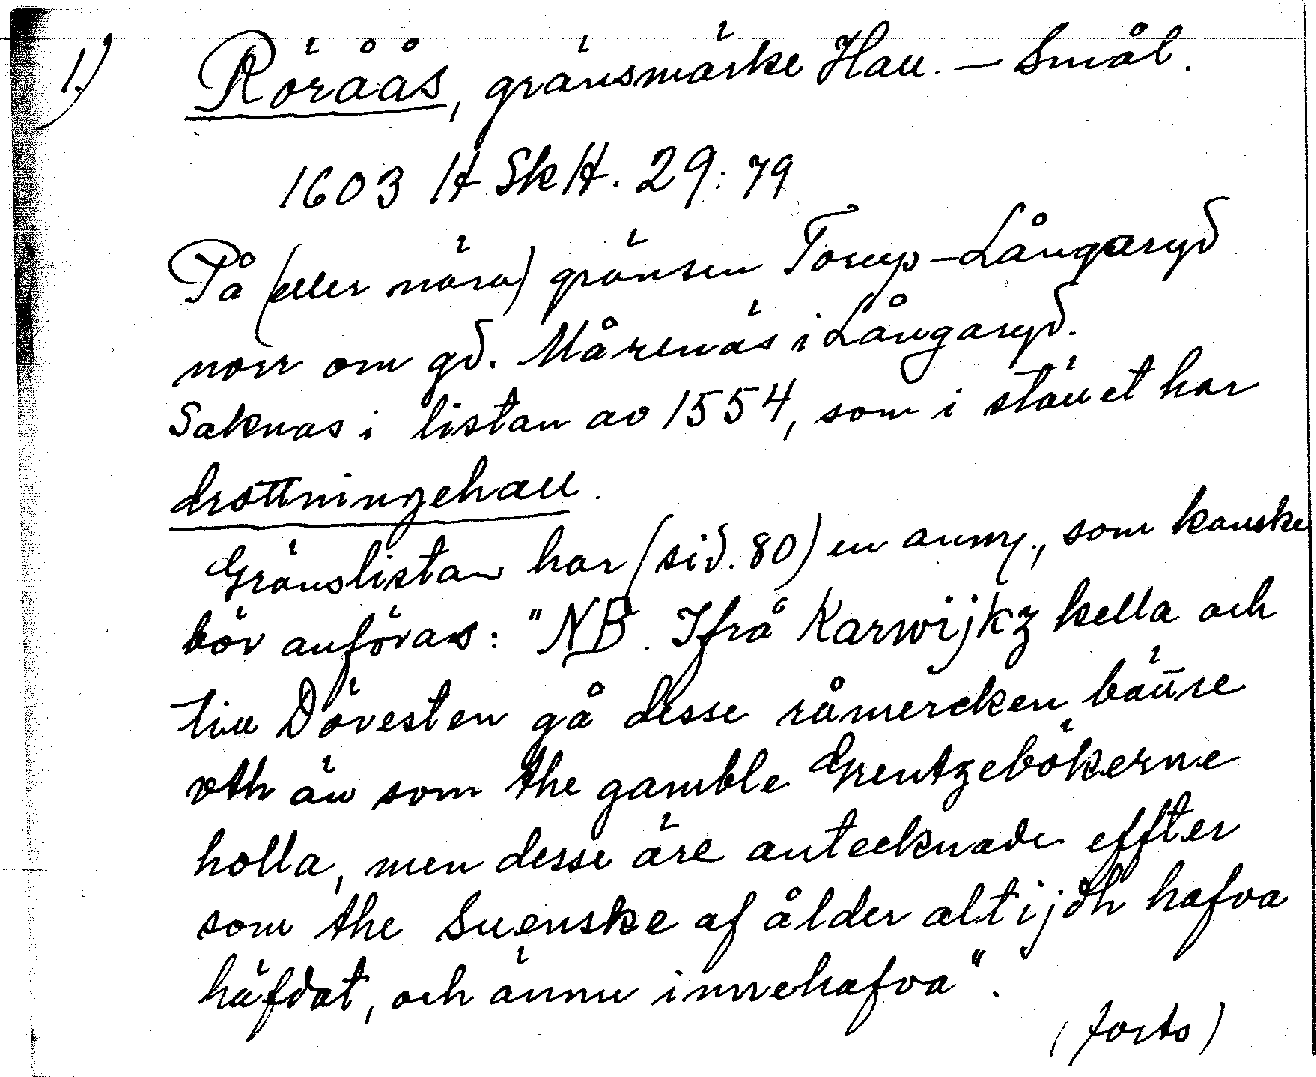 1.) Röråås, gränsmärke Hall. – Smål.
1603 H SkH. 29:79
På (eller nära) gränsen Torup – Långaryd
norr om gd. Mårenäs i Långaryd.
Saknas i listan av 1554, som i stället har
drottningehall.
Gränslistan har (sid. 80) en anm., som kanske
bör anföras: "NB. Ifrå Karwijkz kella och
till Dövesten gå desse råmercken bättre
vth än som the gamble Grentzebökerne
holla, men desse äre antecknade effter
som the Suenske af ålder altijdh hafva
häfdat, och ännu innehafva".
(forts)